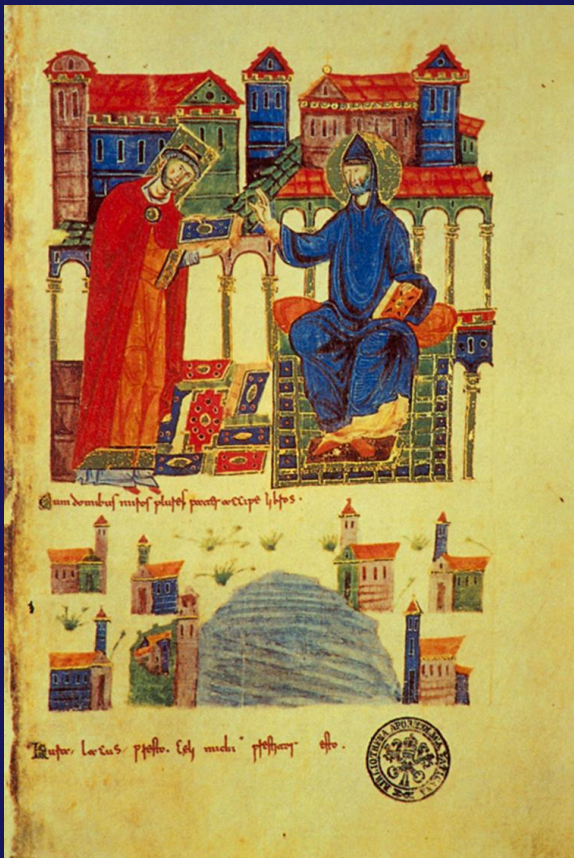 Cum domibus miros plures pater accipe libros.
Rura. lacus. presto. Celi michi prestitor esto.
BIBLIOTHECA APOSTOLICA VATICANA